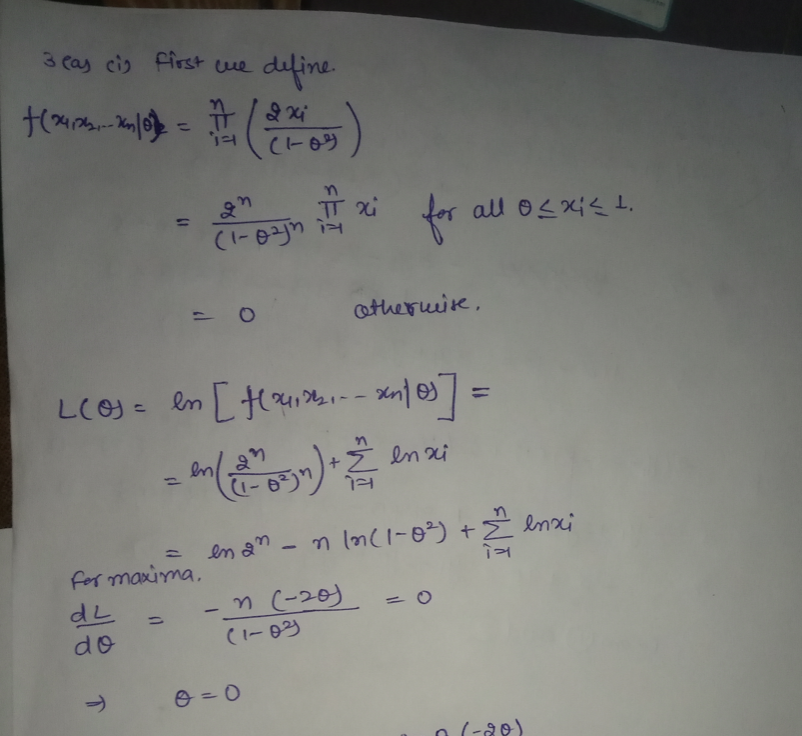 3(a) (i) First we define.
f(x1,x2,...xn|θ) = n∏i=1 (2xi/(1-θ²))
= 2ⁿ/(1-θ²)ⁿ n∏i=1 xi for all θ ≤ xi ≤ 1.
= 0 otherwise.
L(θ) = ln [f(x1,x2,...xn|θ)] =
= ln(2ⁿ/(1-θ²)ⁿ) + n∑i=1 ln xi
= ln 2ⁿ - n ln(1-θ²) + n∑i=1 ln xi
For maxima.
dL/dθ = -n(-2θ)/(1-θ²) = 0
⇒ θ = 0
(-2θ)